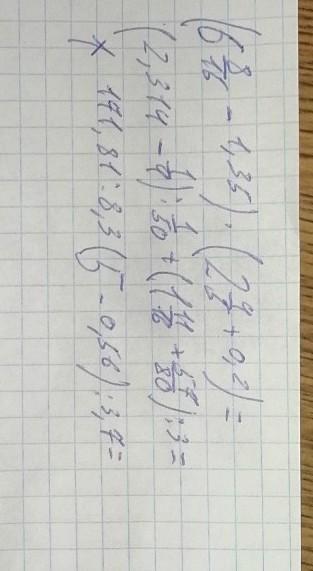 (6 8/16 - 1,35) · (2 4/5 + 0,2) =
(2,314 - 1/4) : 1/50 + (1 11/16 + 57/80) : 3 =
* 171,81 : 8,3 (5 - 0,56) : 3,7 =